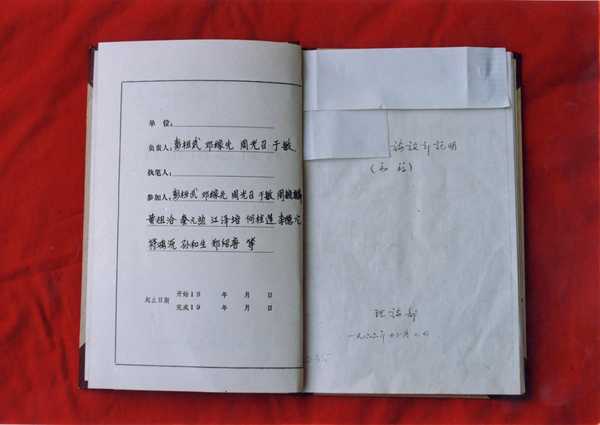 单位：
负责人：彭桓武 邓稼先 周光召 于敏
执笔人：
参加人：彭桓武 邓稼先 周光召 于敏 周毓麟
黄祖洽 秦元勋 江泽培 何桂莲 李德元
孙和生 郑绍唐 等
起止日期
开始19 年 月 日
完成19 年 月 日
论设计说明
（初稿）
理论部